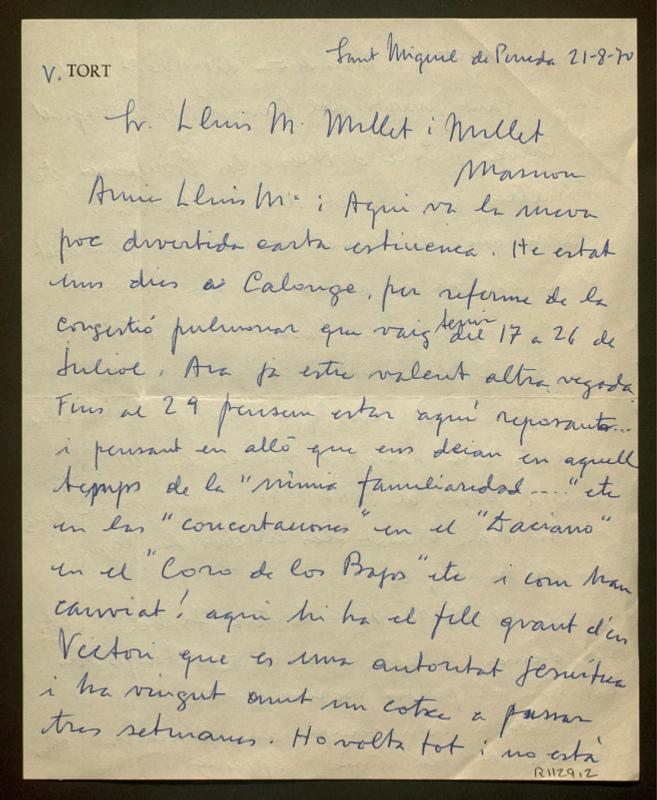 V. TORT
Sant Miquel de Pineda 21-8-70
Sr. Lluis M. Millet i Millet
Masnou
Amic Lluis Mª: Aqui va la meva
poc divertida carta estiuenca. He estat
uns dies a Calonge, per referme de la
congestió pulmonar que vaig tenir del 17 a 26 de
Juliol. Ara ja estic valent altra vegada.
Fins al 29 pensem estar aquí reposant...
i pensant en allò que ens deian en aquell
temps de la "nimia familiaridad...." etc
en las "concertaciones" en el "Daciano"
en el "Coro de los Bajos" etc i com han
canviat! aqui hi ha el fill grant d'en
Victori que es una autoritat Jesuitica
i ha vingut amt un cotxe a passar
tres setmanes. Ho volta tot i no está
R112912